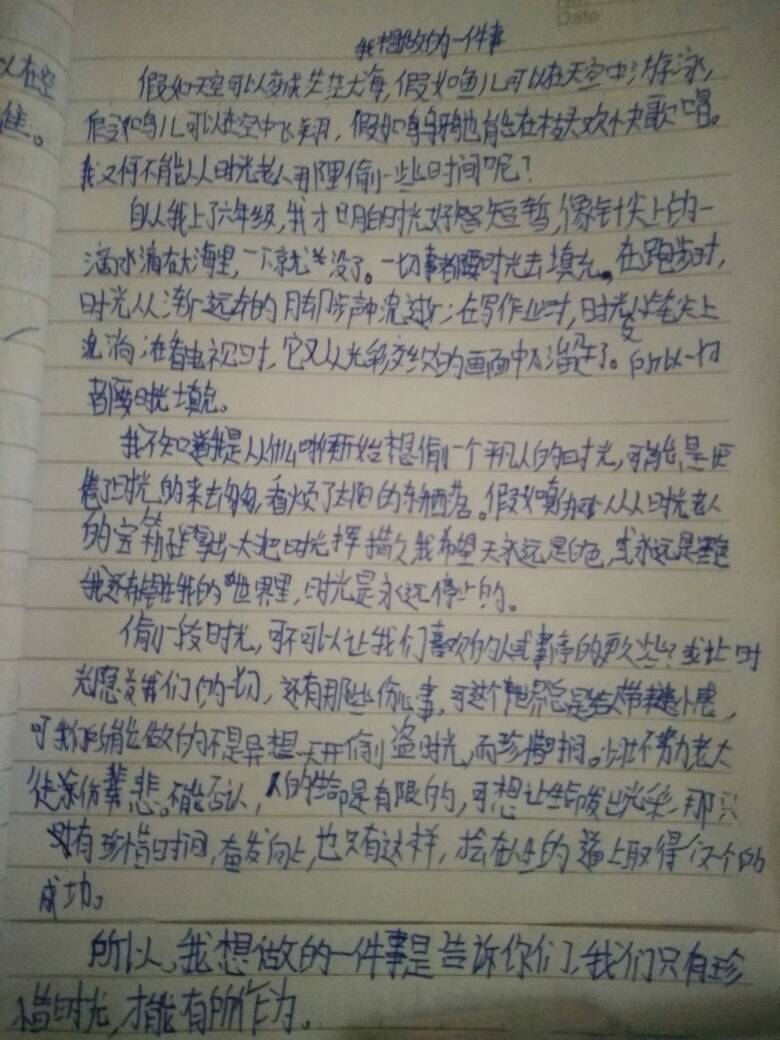 Date
我想做的一件事
以在空
假如天空可以变成茫茫大海,假如鱼儿可以在天空中游泳,
佳。
假如鸟儿可以在空中飞翔,假如乌鸦也能在枝头欢快歌唱。
我又何不能从时光老人那里偷一些时间呢?
自从我上了六年级,我才明白时光好短暂,像针尖上的一
滴水滴在大海里,一下就没了。一切事都要时光去填充。在跑步时,
时光从渐远的脚步声中流过;在写作业时,时光从笔尖上
流淌;在看电视时,它又从光彩交织的画面中溜走了。所以一切
都要时光填充。
我不知道我是从什么时候开始想偷一个平凡人的时光,可能是
倦了时光的来去匆匆,看烦了太阳的东升西落。假如从时光老人
的宝箱里拿出一大把时光挥撒,我希望天永远是白色,或永远是黑色
我还希望在我的世界里,时光是永远停止的。
偷一段时光,可不可以让我们喜欢的人或事停的更久些?或让时
光我们的一切,还有那些伤心事,可这个世界总是
可我们所能做的不是异想天开偷盗时光,而珍惜时间。少壮不努力老大
徒伤悲。不能否认,人的生命是有限的,可想让生命发出光彩,那只
有珍惜时间,奋发向上,也只有这样,才会在人生的道上取得一个个的
成功。
所以,我想做的一件事是告诉你们,我们只有珍
惜时光,才能有所作为。